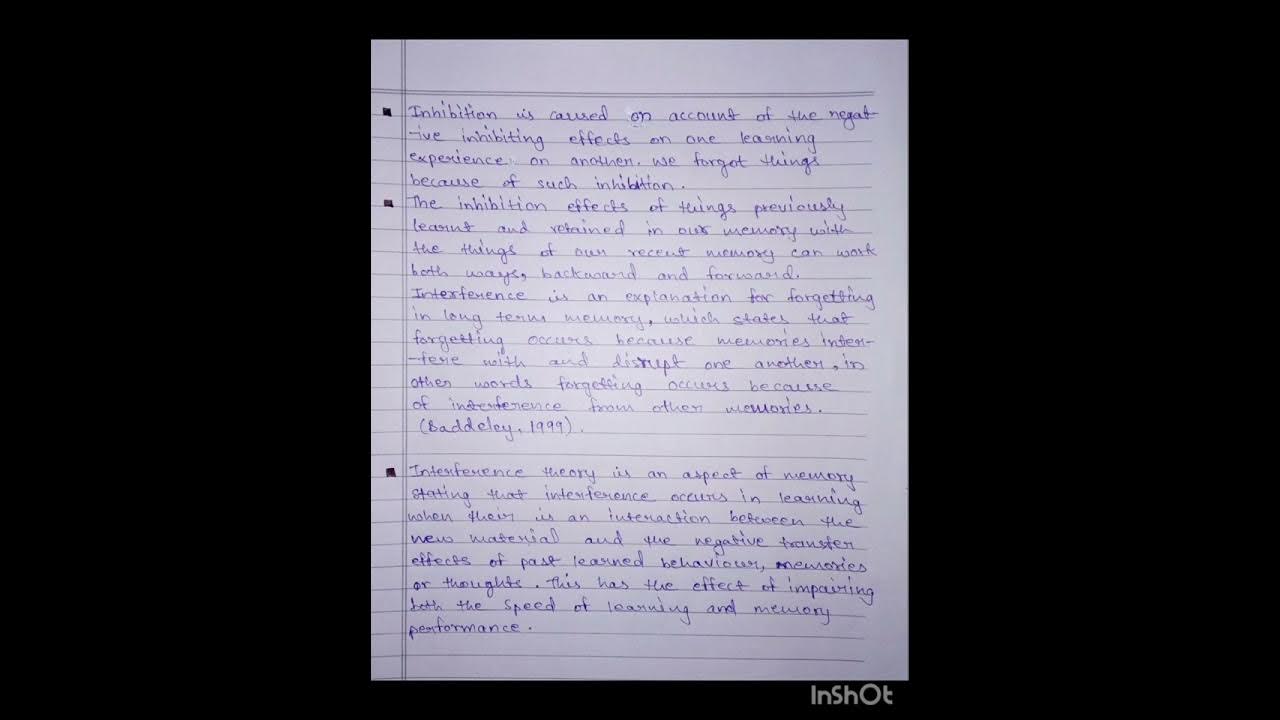 Inhibition is caused on account of the negat-
-ive inhibiting effects on one learning
experience on another. We forgot things
because of such inhibition.
The inhibition effects of things previously
learnt and retained in our memory with
the things of our recent memory can work
both ways, backward and forward.
Interference is an explanation for forgetting
in long term memory, which states that
forgetting occurs because memories inter-
-fere with and disrupt one another, in
other words forgetting occurs because
of interference from other memories.
(Baddeley, 1999).
Interference theory is an aspect of memory
stating that interference occurs in learning
when their is an interaction between the
new material and the negative transfer
effects of past learned behaviour, memories
or thoughts. This has the effect of impairing
both the speed of learning and memory
performance.
InShOt